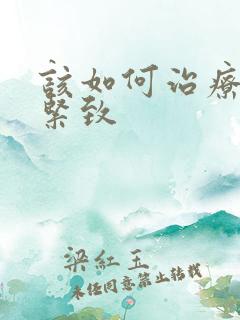 該如何治療
緊致
梁紅玉
未經同意禁止轉載